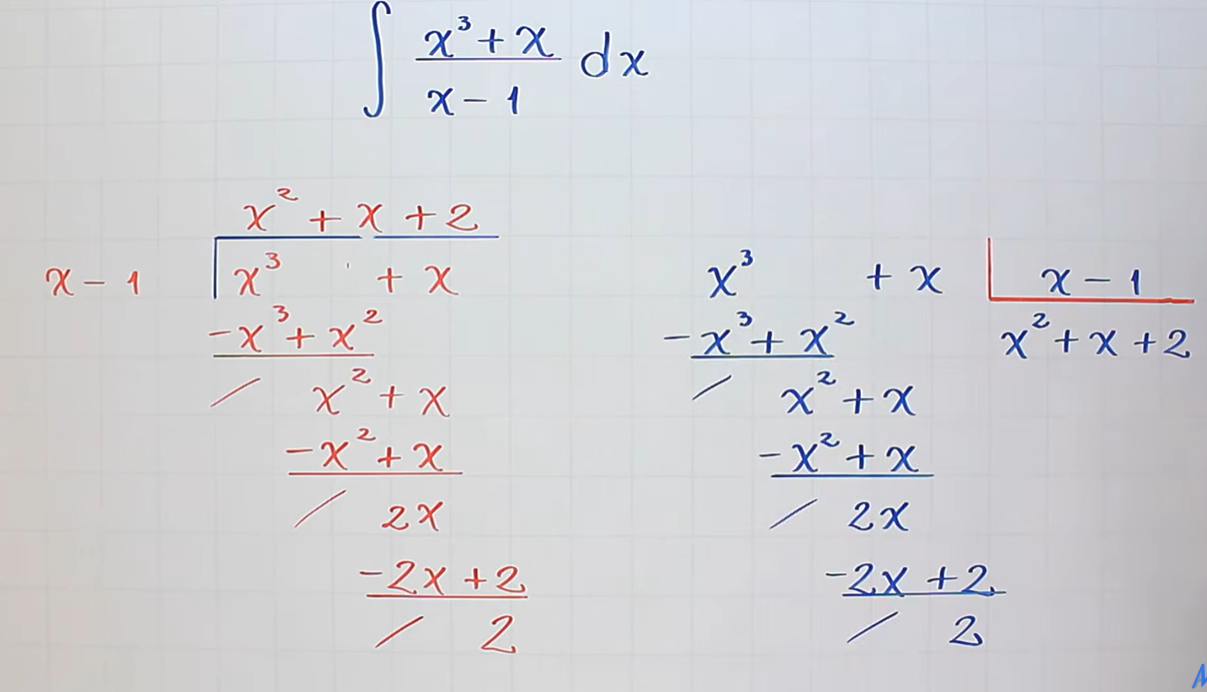 ∫ (x³ + x)/(x - 1) dx
x² + x + 2
x - 1 x³ + x
-x³ + x²
x² + x
-x² + x
2x
-2x + 2
2
x³ + x x - 1
-x³ + x² x² + x + 2
x² + x
-x² + x
2x
-2x + 2
2